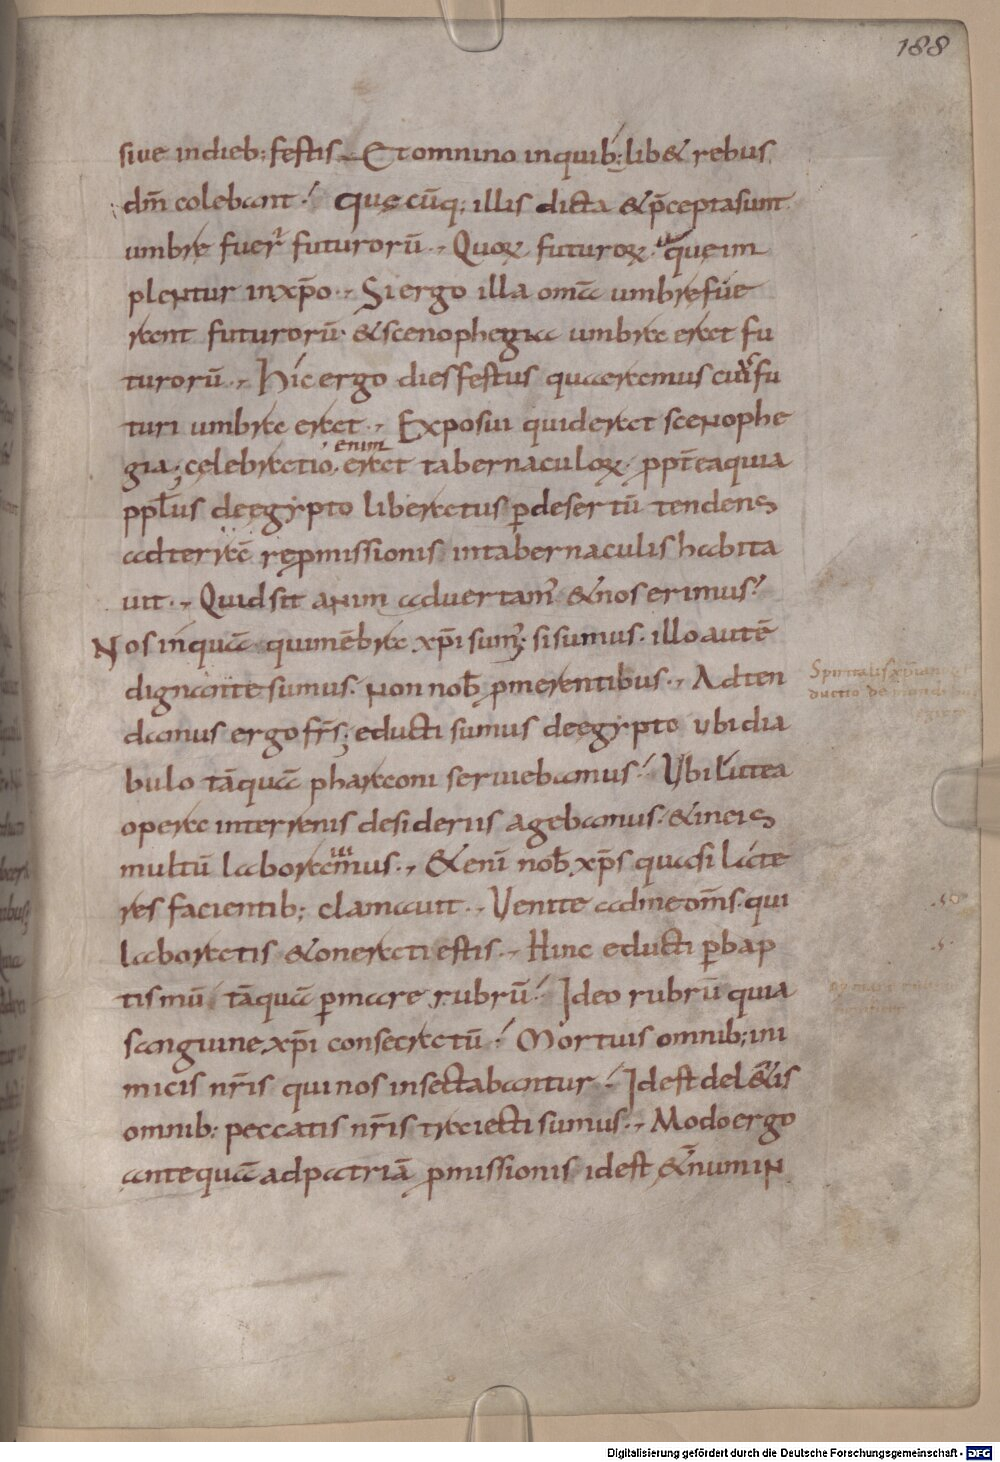 188
siue indieb; festis. Et omnino inquib; lib& rebus
dm̄ colebant. Quę cūq; illis dicta & p̄cepta sunt
umbrę fuer̄ futurorū. Quoꝝ futuroꝝ quę im
plentur in xp̄o. Si ergo illa om̄a umbrę fue
rant futurorū & scenophegia umbra erat fu
turorū. Hic ergo dies festus quaeramus cui fu
turi umbra erat. Exposui quid erat scenophe
gia; celebratio enim erat tabernaculoꝝ. ppt̄ea quia
ppl̄us de ęgypto liberatus ꝑ desertū tendens
ad terrā repmissionis in tabernaculis habita
uit. Quid sit animaduertam̄ & nos erimus.
Nos inquā qui mēbra xp̄i sum; si sumus. illo autē
dignante sumus. non nob̄ pmerentibus. Adten
damus ergo fr̄s; educti sumus de ęgypto ubi dia
bulo tāquā pharaoni seruiebamus. Ubi lutea
opera in terrenis desideriis agebamus. & in eis
multū laboramus. &eni nob̄ xp̄s quasi late
res facientib; clamauit. Uenite ad me om̄s. qui
laboratis & onerati estis. Hinc educti ꝑ bap
tismū tāquā ꝑ mare rubrū. Ideo rubrū quia
sanguine xp̄i consecratū. Mortuis omnib; ini
micis nr̄is qui nos insectabantur. Idest del&is
omnib: peccatis nr̄is traiecti sumus. Modo ergo
antequā ad patriā pmissionis idest &num in
Digitalisierung gefördert durch die Deutsche Forschungsgemeinschaft - DFG